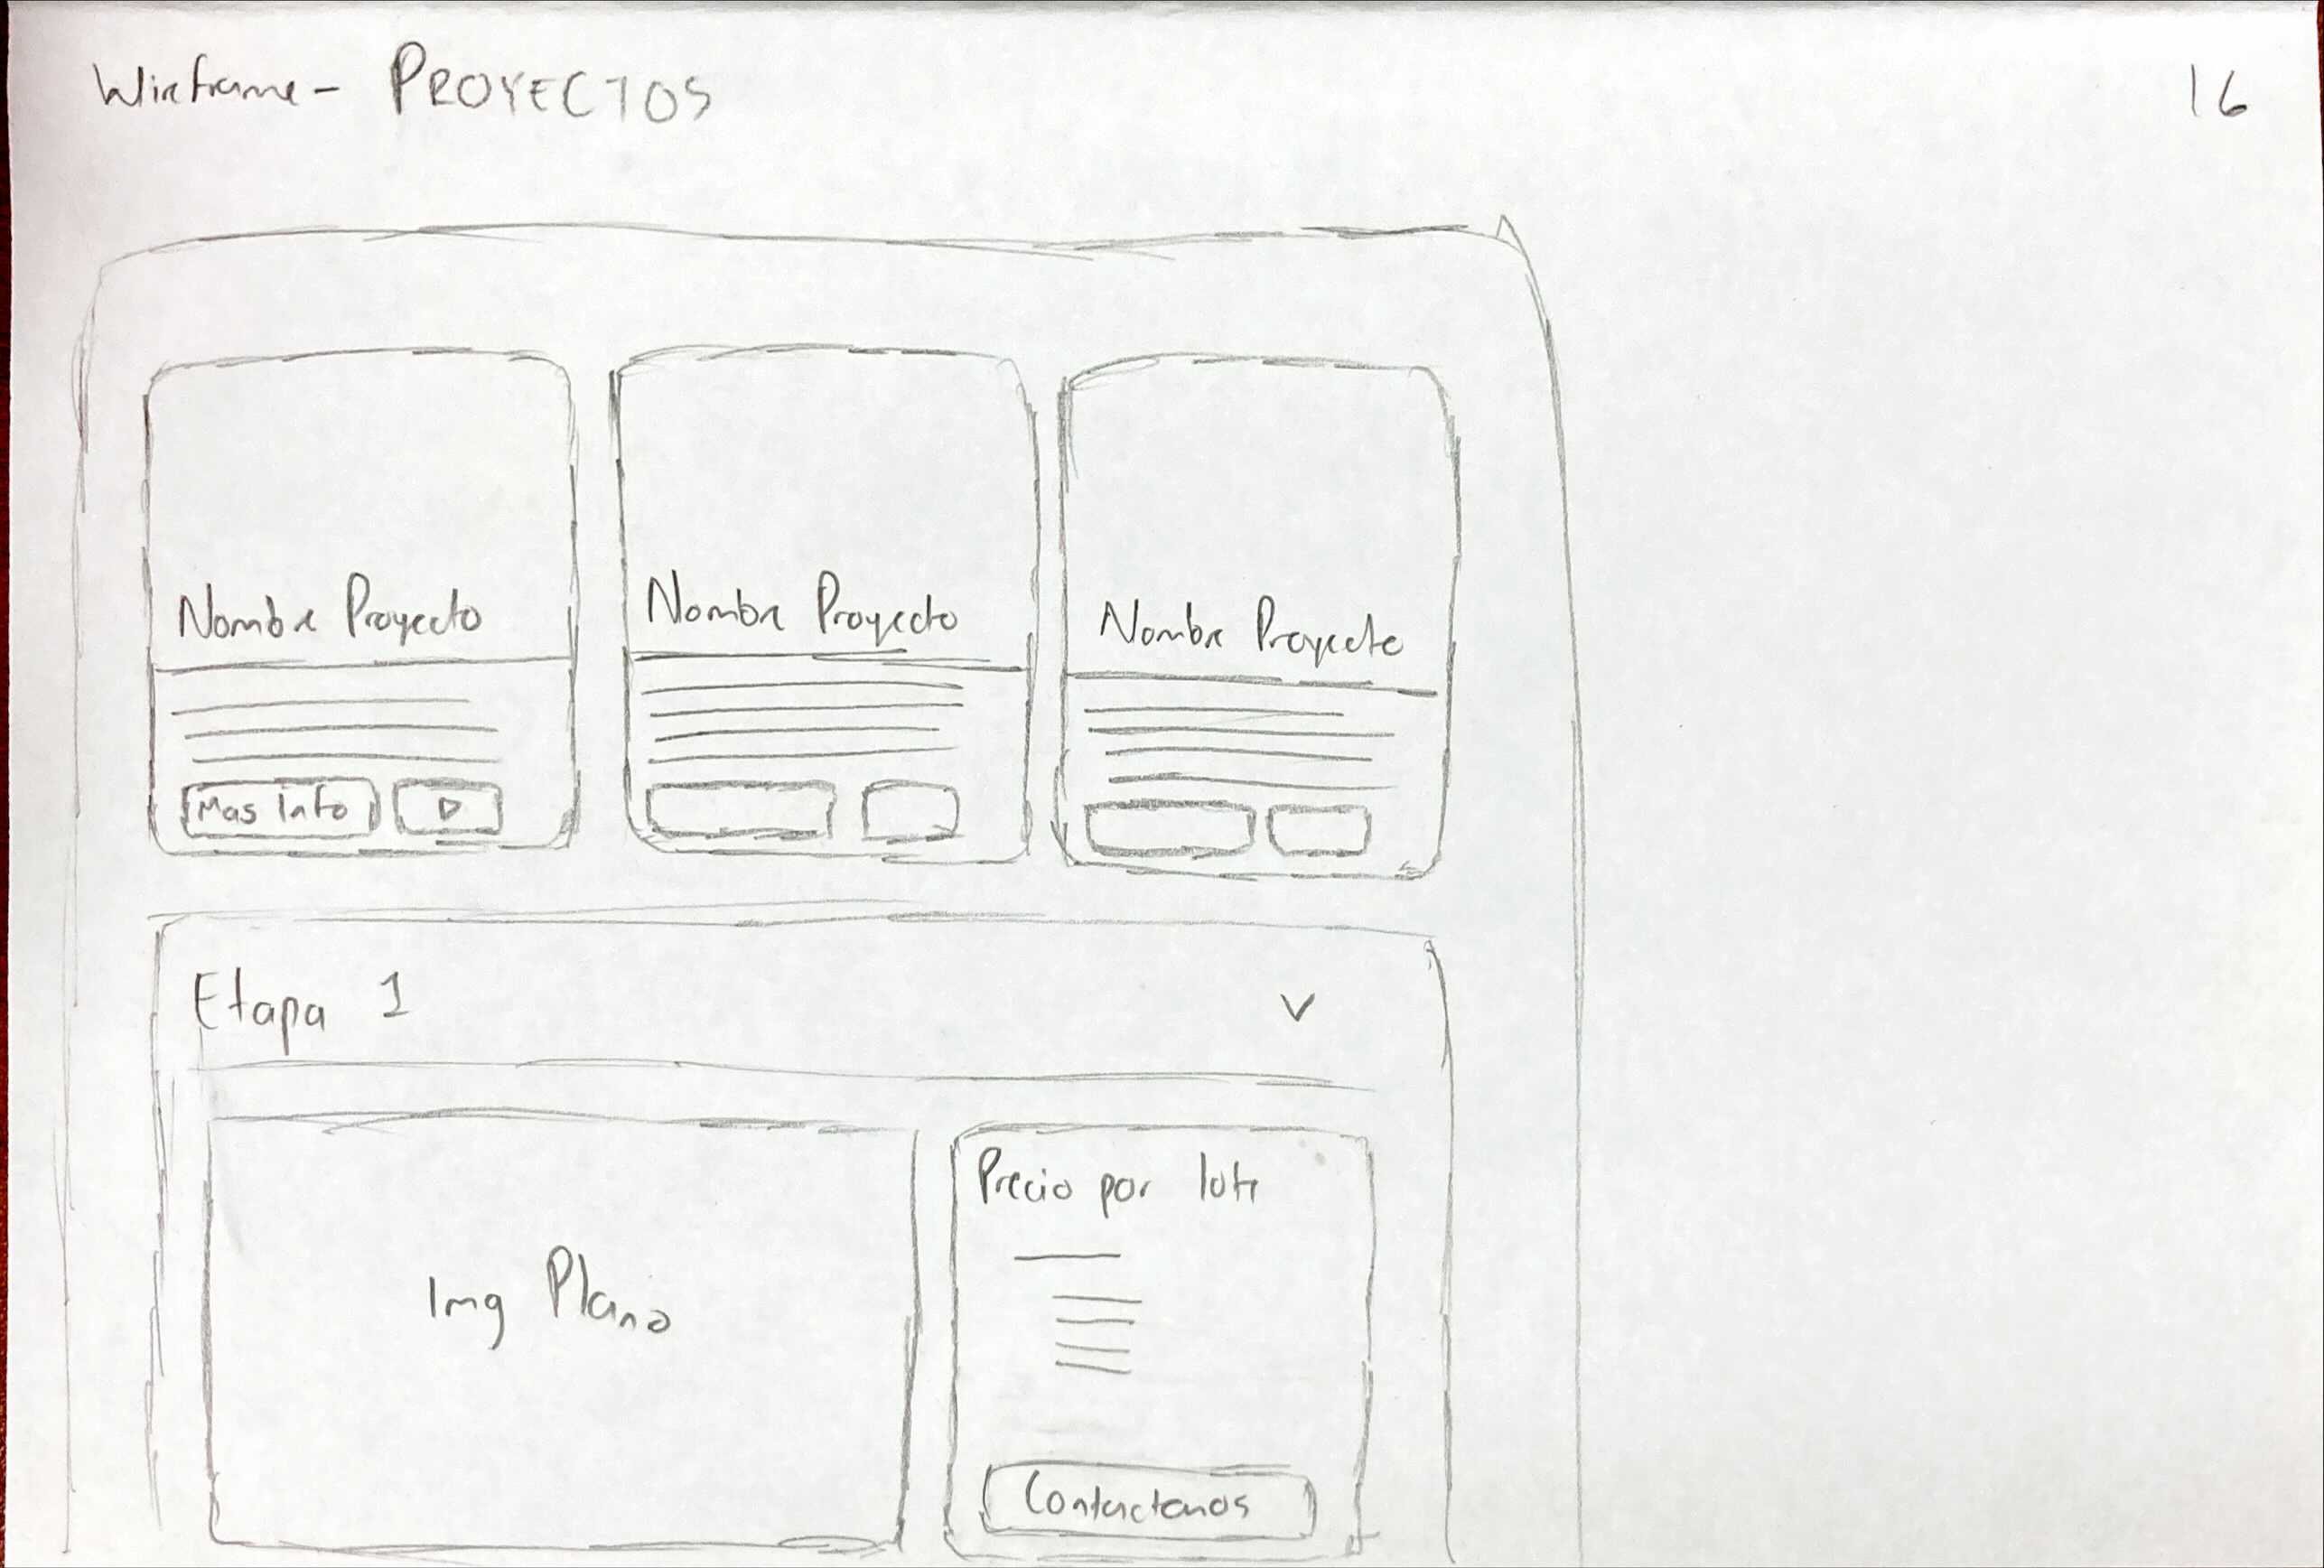 Wireframe - PROYECTOS
16
Nombre Proyecto
Nombre Proyecto
Nombre Proyecto
Mas Info
Etapa 1
Img Plano
Precio por lote
Contactanos